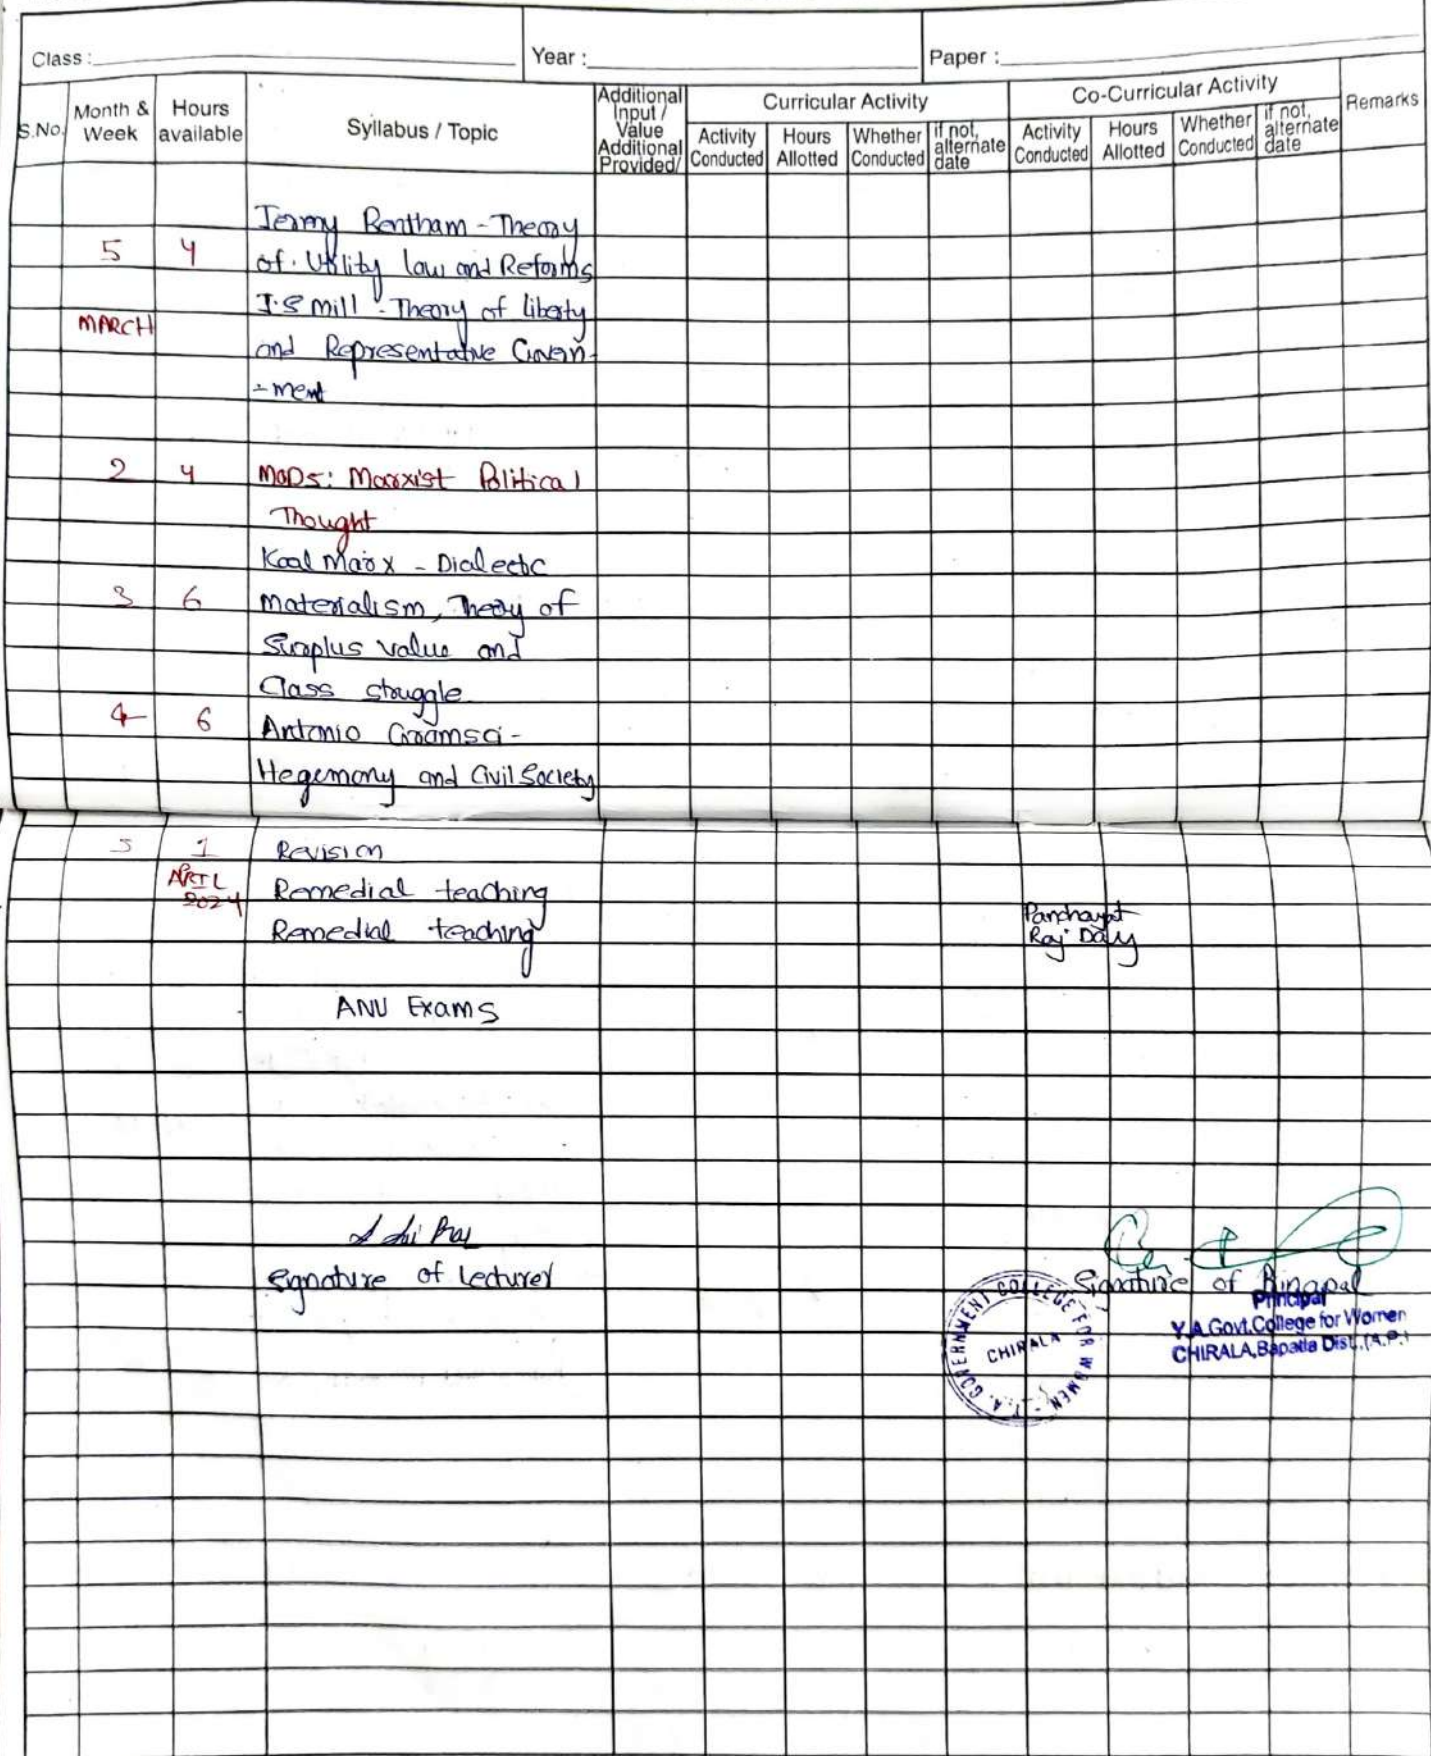 Class :
Year :
Paper :
S.No.
Month & Week
Hours available
Syllabus / Topic
Additional Input / Value Additional Provided/
Curricular Activity
Activity Conducted
Hours Allotted
Whether Conducted
if not, alternate date
Co-Curricular Activity
Activity Conducted
Hours Allotted
Whether Conducted
if not, alternate date
Remarks
Jermy Bentham - Theory
5 4 of Utility law and Reforms
J.S mill - Theory of liberty
MARCH
and Representative Govern-
-ment
2 4 MOD5: Marxist Political
Thought
Karl Marx - Dialectc
3 6 materialism, Theory of
Surplus value and
Class struggle
4 6 Antonio Gramsci -
Hegemony and Civil Society
5 1 Revision
APRIL
2024
Remedial teaching
Remedial teaching
Panchayat
Raj Day
ANU Exams
Signature of Lecturer
Signature of Principal
Principal
Y.A.Govt.College for Women
CHIRALA, Bapatla Dist., (A.P.)
Y.A. GOVERNMENT COLLEGE FOR WOMEN
CHIRALA